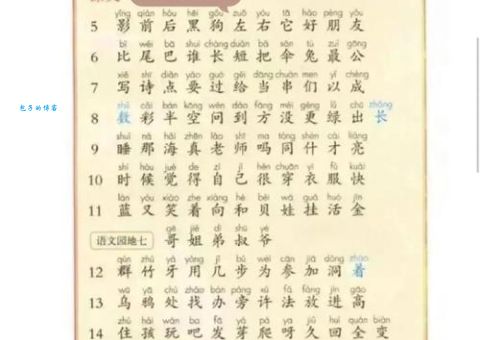 yǐng qián hòu hēi gǒu zuǒ yòu tā hǎo péng yǒu
5 影 前 后 黑 狗 左 右 它 好 朋 友
bǐ wěi bā shuí cháng duǎn bǎ sǎn tù zuì gōng
6 比 尾 巴 谁 长 短 把 伞 兔 最 公
xiě shī diǎn yào guò gěi dāng chuàn men yǐ chéng
7 写 诗 点 要 过 给 当 串 们 以 成
shǔ cǎi bàn kōng wèn dào fāng méi gèng lǜ chū zhǎng
8 数 彩 半 空 问 到 方 没 更 绿 出 长
包子的博客
shuì nà hǎi zhēn lǎo shī ma tóng shén cái liàng
9 睡 那 海 真 老 师 吗 同 什 才 亮
shí hòu jué de zì jǐ hěn chuān yī fú kuài
10 时 候 觉 得 自 己 很 穿 衣 服 快
lán yòu xiào zhe xiàng hé bèi wá guà huó jīn
11 蓝 又 笑 着 向 和 贝 娃 挂 活 金
gē jiě dì shū yé
语文园地七 哥 姐 弟 叔 爷
qún zhú yá yòng jǐ bù wéi cān jiā dòng zháo
12 群 竹 牙 用 几 步 为 参 加 洞 着
wū yā chǔ zhǎo bàn páng xǔ fǎ fàng jìn gāo
13 乌 鸦 处 找 办 旁 许 法 放 进 高
zhù hái wán ba fā yá pá ya jiǔ huí quán biàn
14 住 孩 玩 吧 发 芽 爬 呀 久 回 全 变